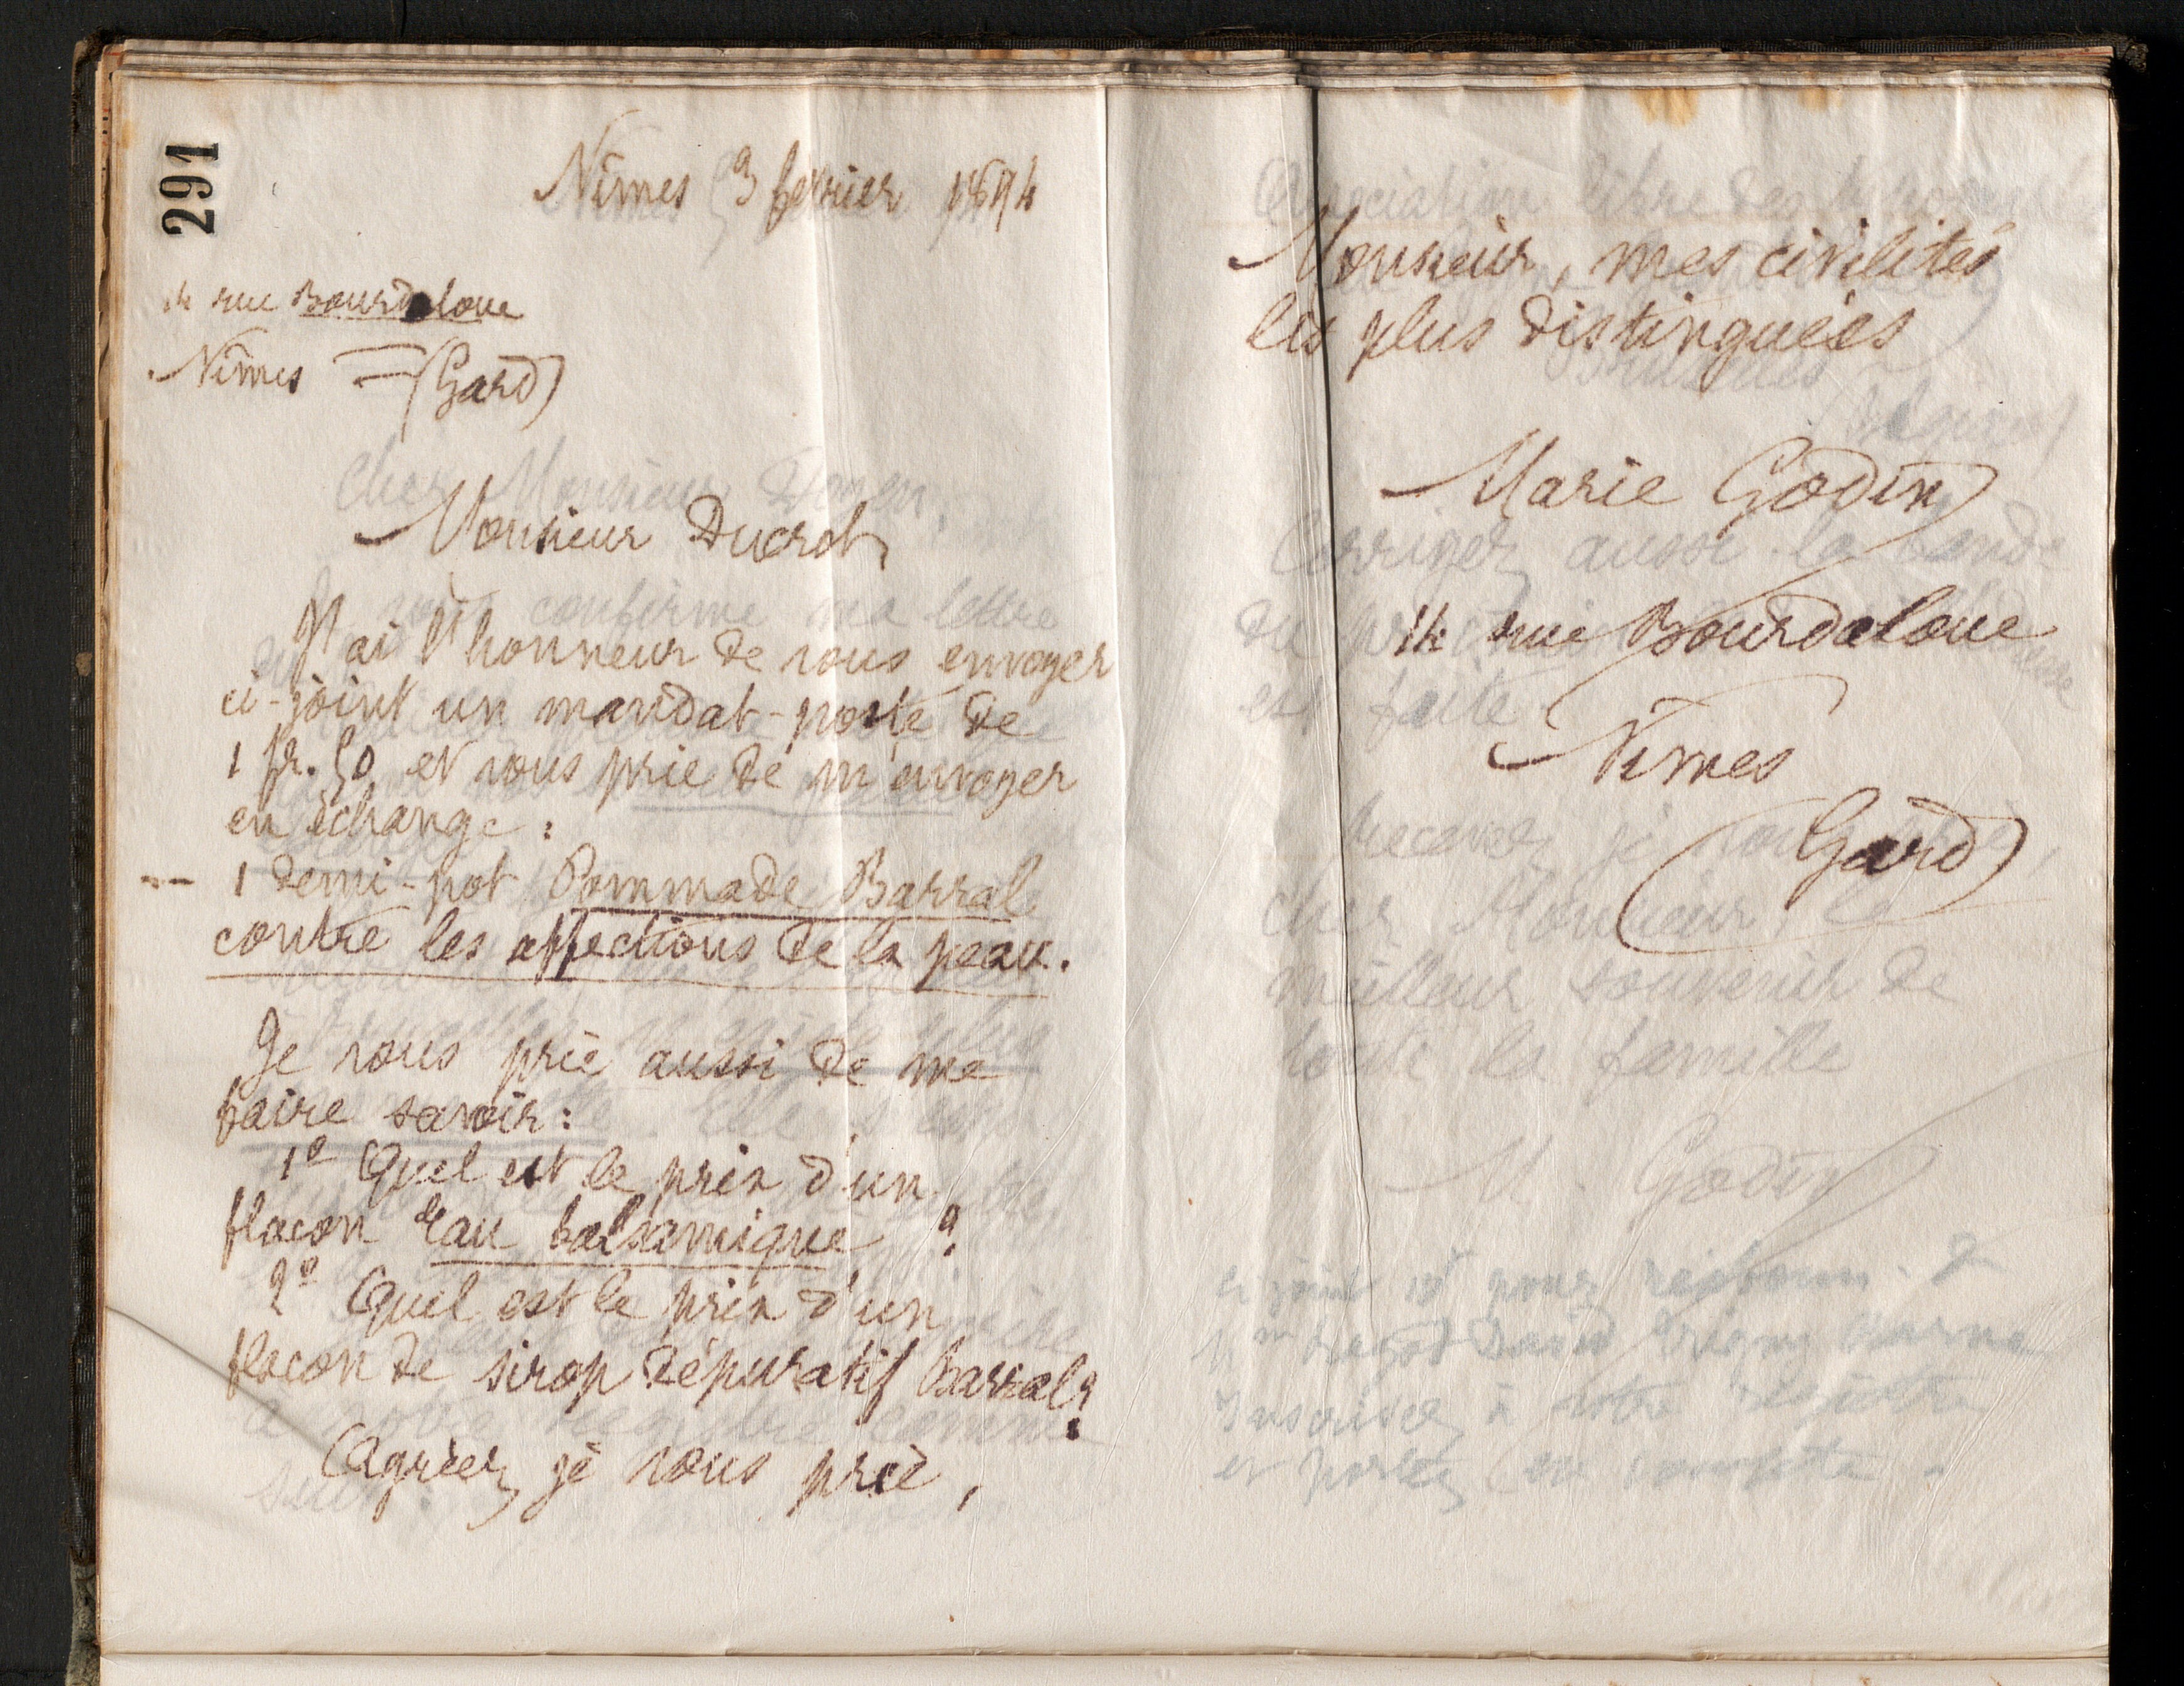 291
Nîmes 3 fevrier 1894
14 rue Bourdaloue
Nîmes (Gard)
Monsieur Ducrot
J'ai l'honneur de vous envoyer
ci-joint un mandat-poste de
1 fr. 50 et vous prie de m'envoyer
en échange :
1 demi-pot Pommade Barral
contre les affections de la peau.
Je vous prie aussi de me
faire savoir :
1º Quel est le prix d'un
flacon d'eau balsamique ?
2º Quel est le prix d'un
flacon de sirop dépuratif Barral ?
Agréez, je vous prie,
Monsieur, mes civilités
les plus distinguées
Marie Godin
14 rue Bourdaloue
Nîmes
(Gard)